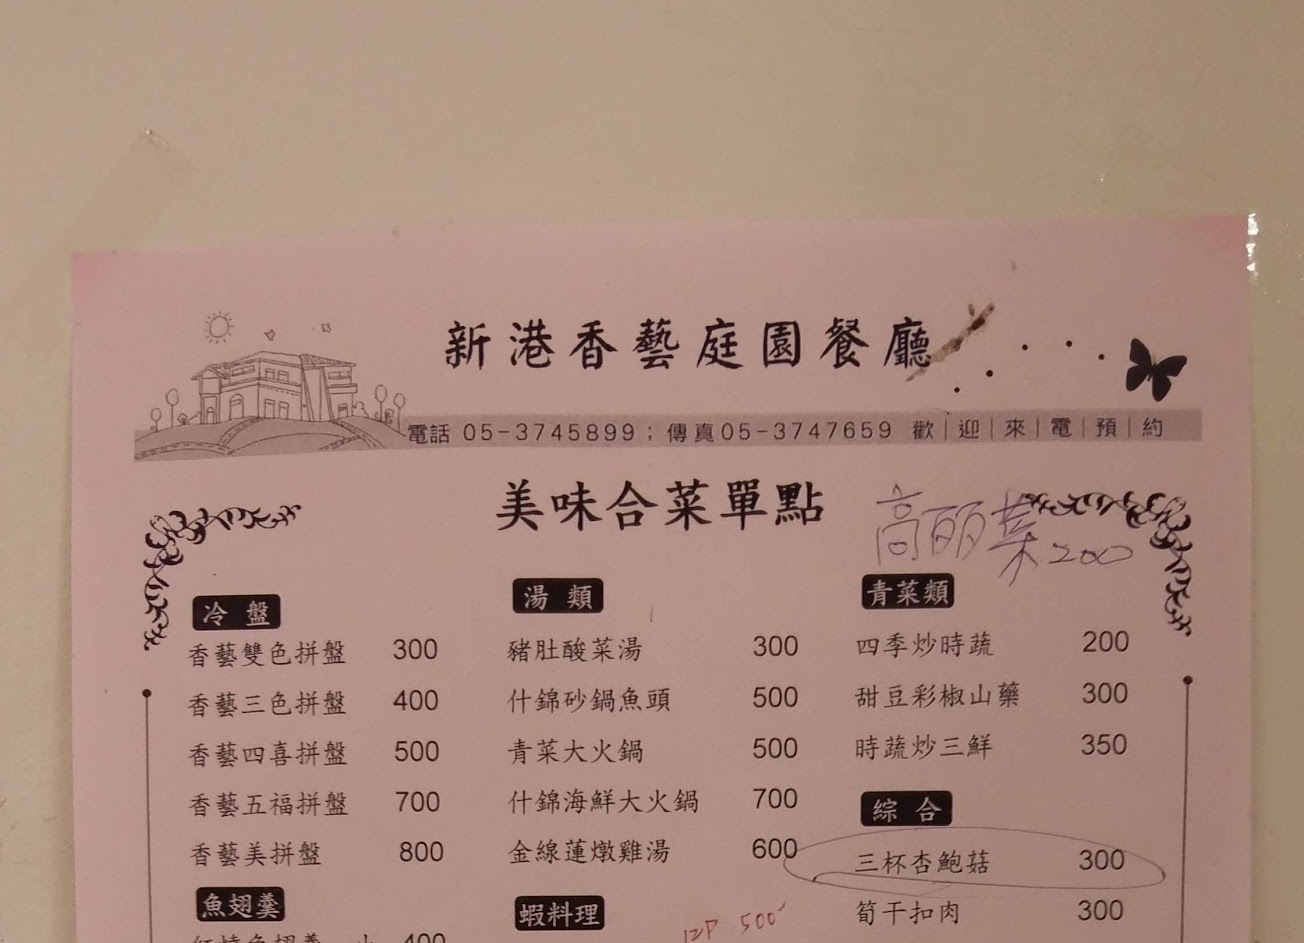 新港香藝庭園餐廳
電話 05-3745899；傳真05-3747659 歡｜迎｜來｜電｜預｜約
美味合菜單點
高丽菜200
冷盤
香藝雙色拼盤 300
香藝三色拼盤 400
香藝四喜拼盤 500
香藝五福拼盤 700
香藝美拼盤 800
魚翅羹
紅燒魚翅羹 小 400
湯類
豬肚酸菜湯 300
什錦砂鍋魚頭 500
青菜大火鍋 500
什錦海鮮大火鍋 700
金線蓮燉雞湯 600
蝦料理
12P 500
青菜類
四季炒時蔬 200
甜豆彩椒山藥 300
時蔬炒三鮮 350
綜合
三杯杏鮑菇 300
筍干扣肉 300